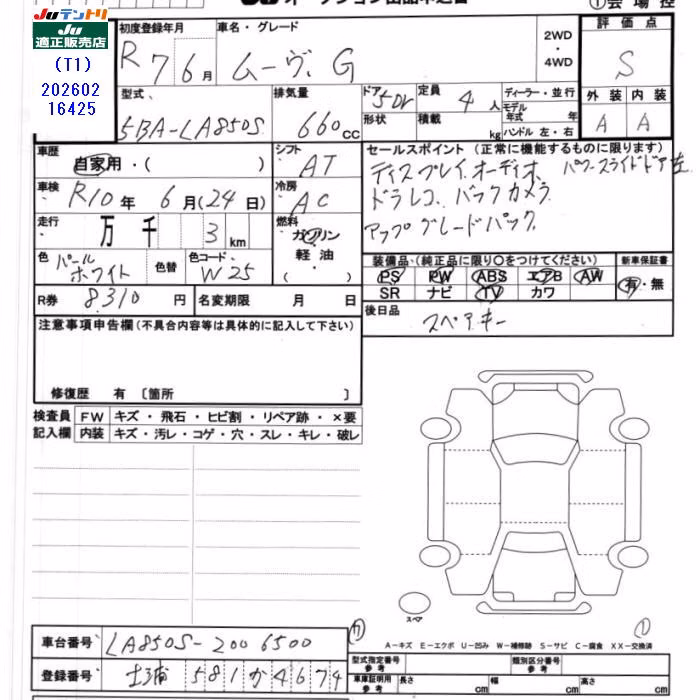 JUテントリ
JU適正販売店
(T1)
202602
16425
①会場控
初度登録年月
R 7年 6月
車名・グレード
ムーヴ G
2WD
・
4WD
評価点
S
型式
5BA-LA850S
排気量
660cc
ドア 5Dr
形状
定員 4人
積載 kg
ディーラー・並行
モデル年式 年式
ハンドル 左・右
外装 内装
A A
車歴
自家用・( )
シフト
AT
セールスポイント (正常に機能するものに限ります)
ディスプレイオーディオ パワースライドドア左
ドラレコ、バックカメラ
アップグレードパック
車検
R10年 6月(24日)
冷房
AC
走行
万 千 3 km
燃料
ガソリン
・
軽油
( ・ )
色
パールホワイト
色替
色コード
W25
装備品・(純正品に限り○をつけてください)
新車保証書
PS PW ABS エアB AW
SR ナビ TV カワ
有・無
R券 8310 円
名変期限 月 日
後日品
スペアキー
注意事項申告欄 (不具合内容等は具体的に記入して下さい)
修復歴 有 〔箇所 〕
検査員 FW キズ・飛石・ヒビ割・リペア跡・×要
記入欄 内装 キズ・汚レ・コゲ・穴・スレ・キレ・破レ
スペア
A-キズ E-エクボ U-凹み W-補修跡 S-サビ C-腐食 XX-交換済
車台番号 LA850S-2006500
登録番号 土浦 581 か 4674
型式指定番号 参考
類別区分番号 参考
車庫証明用 参考 長さ cm 幅 cm 高さ cm